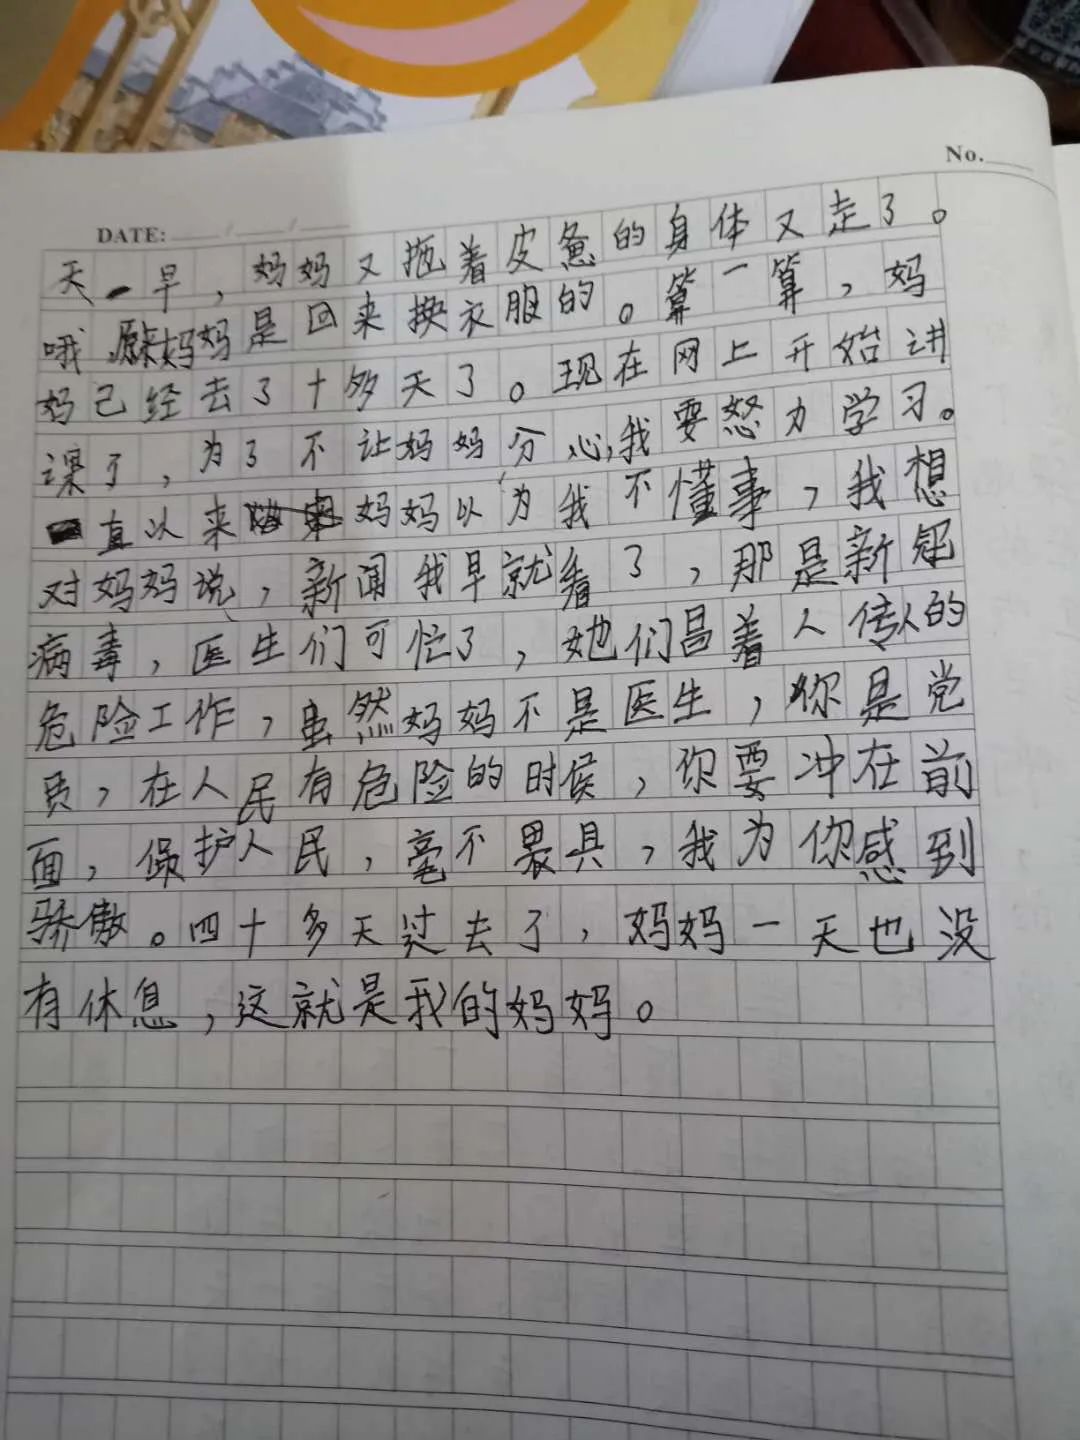 No.
DATE: / /
天一早，妈妈又拖着皮惫的身体又走了。
哦，原来妈妈是回来换衣服的。算一算，妈
妈己经去了十多天了。现在网上开始讲
课了，为了不让妈妈分心，我要怒力学习。
一直以来妈妈以为我不懂事，我想
对妈妈说，新闻我早就看了，那是新冠
病毒，医生们可忙了，她们昌着人传人的
危险工作，虽然妈妈不是医生，你是党
员，在人民有危险的时侯，你要冲在前
面，保护人民，毫不畏具，我为你感到
骄傲。四十多天过去了，妈妈一天也没
有休息，这就是我的妈妈。